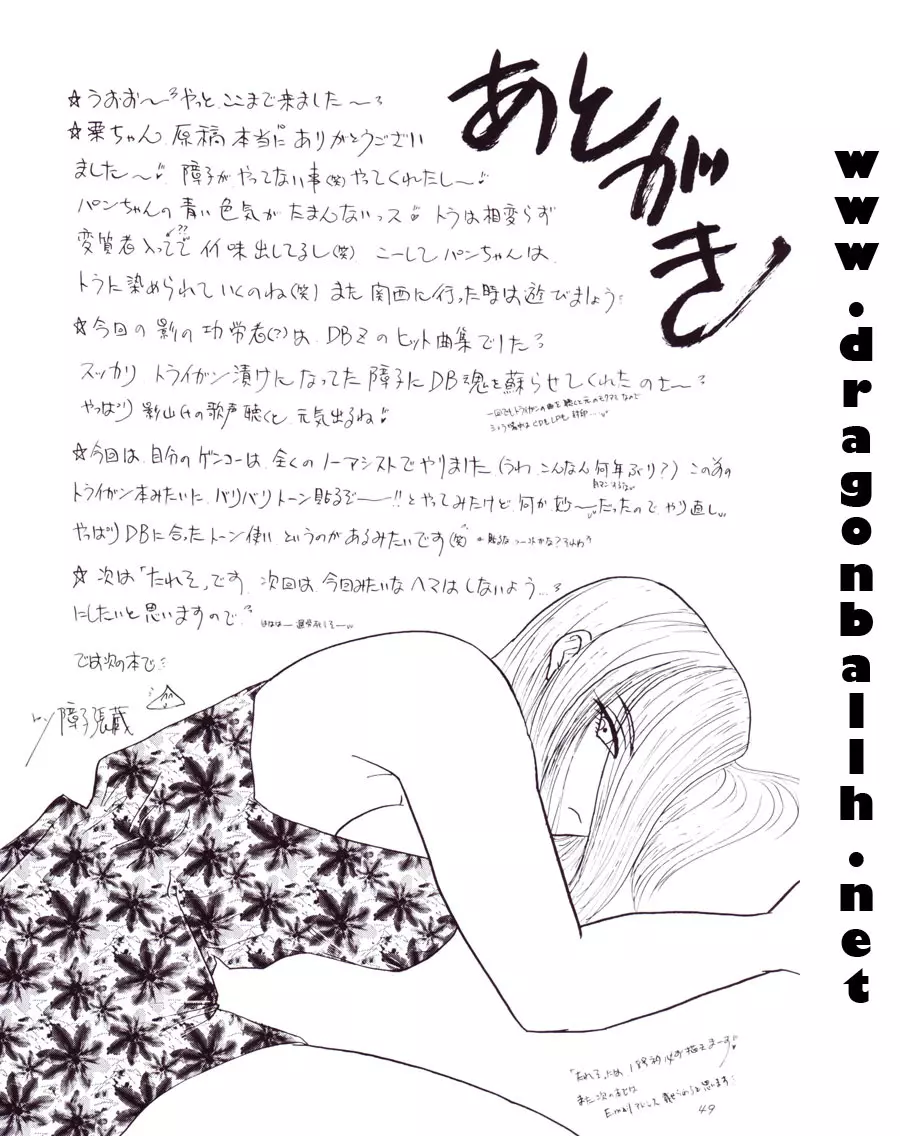 あとがき
☆うおお〜やっと、ここまで来ました〜
☆栗ちゃん、原稿本当にありがとうござい
ました〜 障子がやってない事(笑)やってくれたし〜
パンちゃんの青い色気がたまんないっス トラは相変らず
??
変質者入っててイイ味出してるし(笑) こーしてパンちゃんは、
トラに染められていくのね(笑) また関西に行った時は遊びましょう
☆今回の影の功労者(?)は、DBZのヒット曲集でした
スッカリ トライガン漬けになってた障子にDB魂を蘇らせてくれたのさ〜
やっぱり影山氏の歌声聴くと、元気出るね
☆今回は、自分のゲンコーは、全くのノーアシストでやりました(うわ、こんなん何年ぶり?)この前の
トライガン本みたいに、バリバリトーン貼るぞー!!とやってみたけど、何か妙〜だったので、やり直し
やっぱりDBに合ったトーン使いというのがあるみたいです(笑)
☆次は「たれそ」です、次回は、今回みたいなヘマはしないよう…
にしたいと思いますので
では次の本で
障子張蔵
「たれそ」には
また次の本では
Emailアドレス 載せようと思います
49
www.dragonballh.net